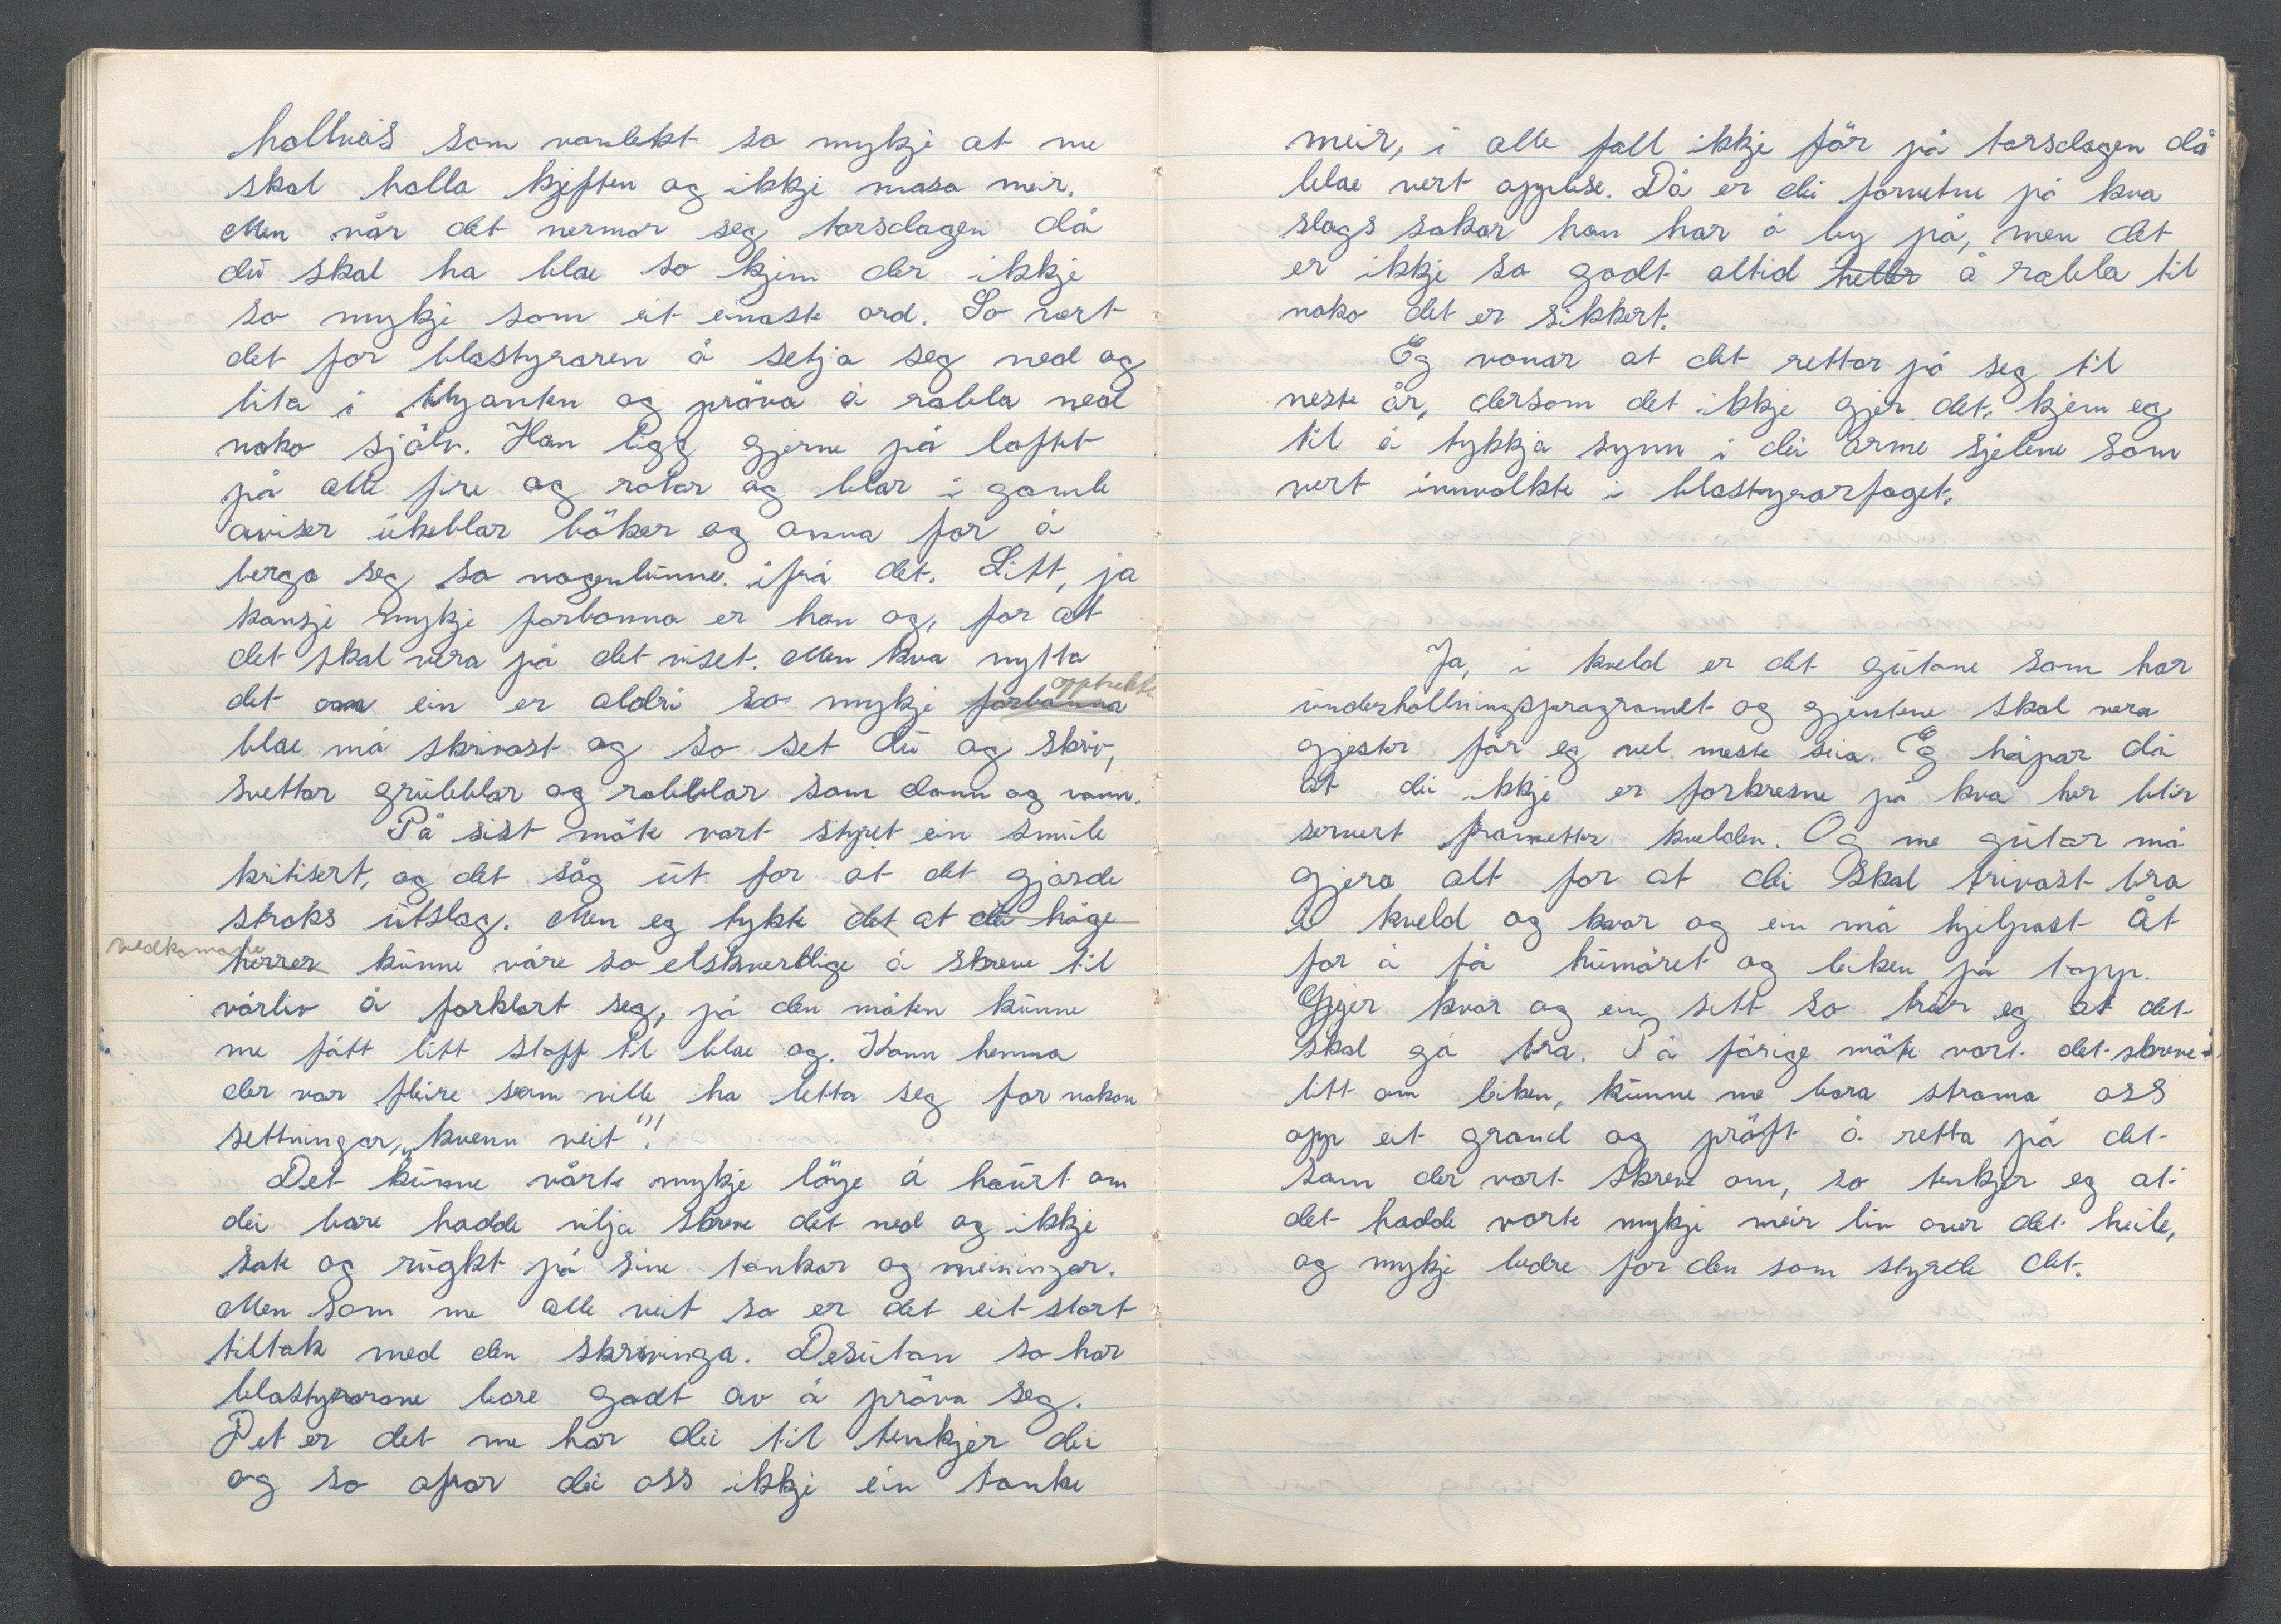 hallveis som vanlekt so mykje at me
skal halla kjeften og ikkje masa meir.
Men når det nermar seg torsdagen då
du skal ha blae so kjem der ikkje
so mykje som eit einaste ord. So vert
det for bladstyraren å setja seg ned og
bita i blyanten og pröva å rabla ned
noko sjölv. Han ligg gjerne på loftet
på alle fire og rotar og blar i gamle
aviser ukeblar böker og anna for å
berga seg so nogenlunne ifrå det. Litt, ja
kansje mykje forbanna er han og, for at
det skal vera på det viset. Men kva nytta
det om ein er aldri so mykje forbanna opptrekte
blae må skrivast og so set du og skriv,
svettar grubblar og rabblar som dann og vann.
På sist möte vart styret ein smule
kritisert, og det såg ut for at det gjorde
straks utslag. Men eg tykte det at dei höge
vedkomande herrer kunne våre so elskverdlige å skreve til
vårliv å forklart seg, på den måten kunne
me fått litt stoff til blae og. Kann henna
der var fleire som ville ha letta seg for nokon
settningar, "kvenn veit"!
Det kunne vårte mykje löye å haürt om
dei bare hadde vilja skreve det ned og ikkje
sate og rugkt på sine tankar og meiningar.
Men som me alle veit so er det eit stort
tiltak med den skrivinga. Desutan so har
blastyrarane bare godt av å pröva seg.
Det er det me har dei til tenkjer dei
og so ofrar dei oss ikkje ein tanke
meir, i alle fall ikkje för på torsdagen då
blae vert opplese. Då er dei forvetne på kva
slags sakar han har å by på, men det
er ikkje so godt altid heller å rabla til
noko det er sikkert.
Eg vonar at det rettar på seg til
neste år, dersom det ikkje gjer det, kjem eg
til å tykkja synn i dei arme sjelene som
vert innvolkte i blastyrarfaget.
Ja, i kveld er det gutane som har
underhallningsprogramet og gjentene skal vera
gjester får eg vel meste seia. Eg håpar då
at dei ikkje er forkresne på kva her blir
servert frametter kvelden. Og me gutar må
gjera alt for at dei skal trivast bra
i kveld og kvar og ein må hjelpast åt
for å få humöret og leiken på topp.
Gjer kvar og ein sitt so trur eg at det
skal gå bra. På förige möte vart det skreve
litt om leiken, kunne me bara strama oss
opp eit grand og pröft å retta på det
som der vart skreve om, so tenkjer eg at
det hadde vorte mykje meir liv over det heile,
og mykje bedre for den som styrde det.